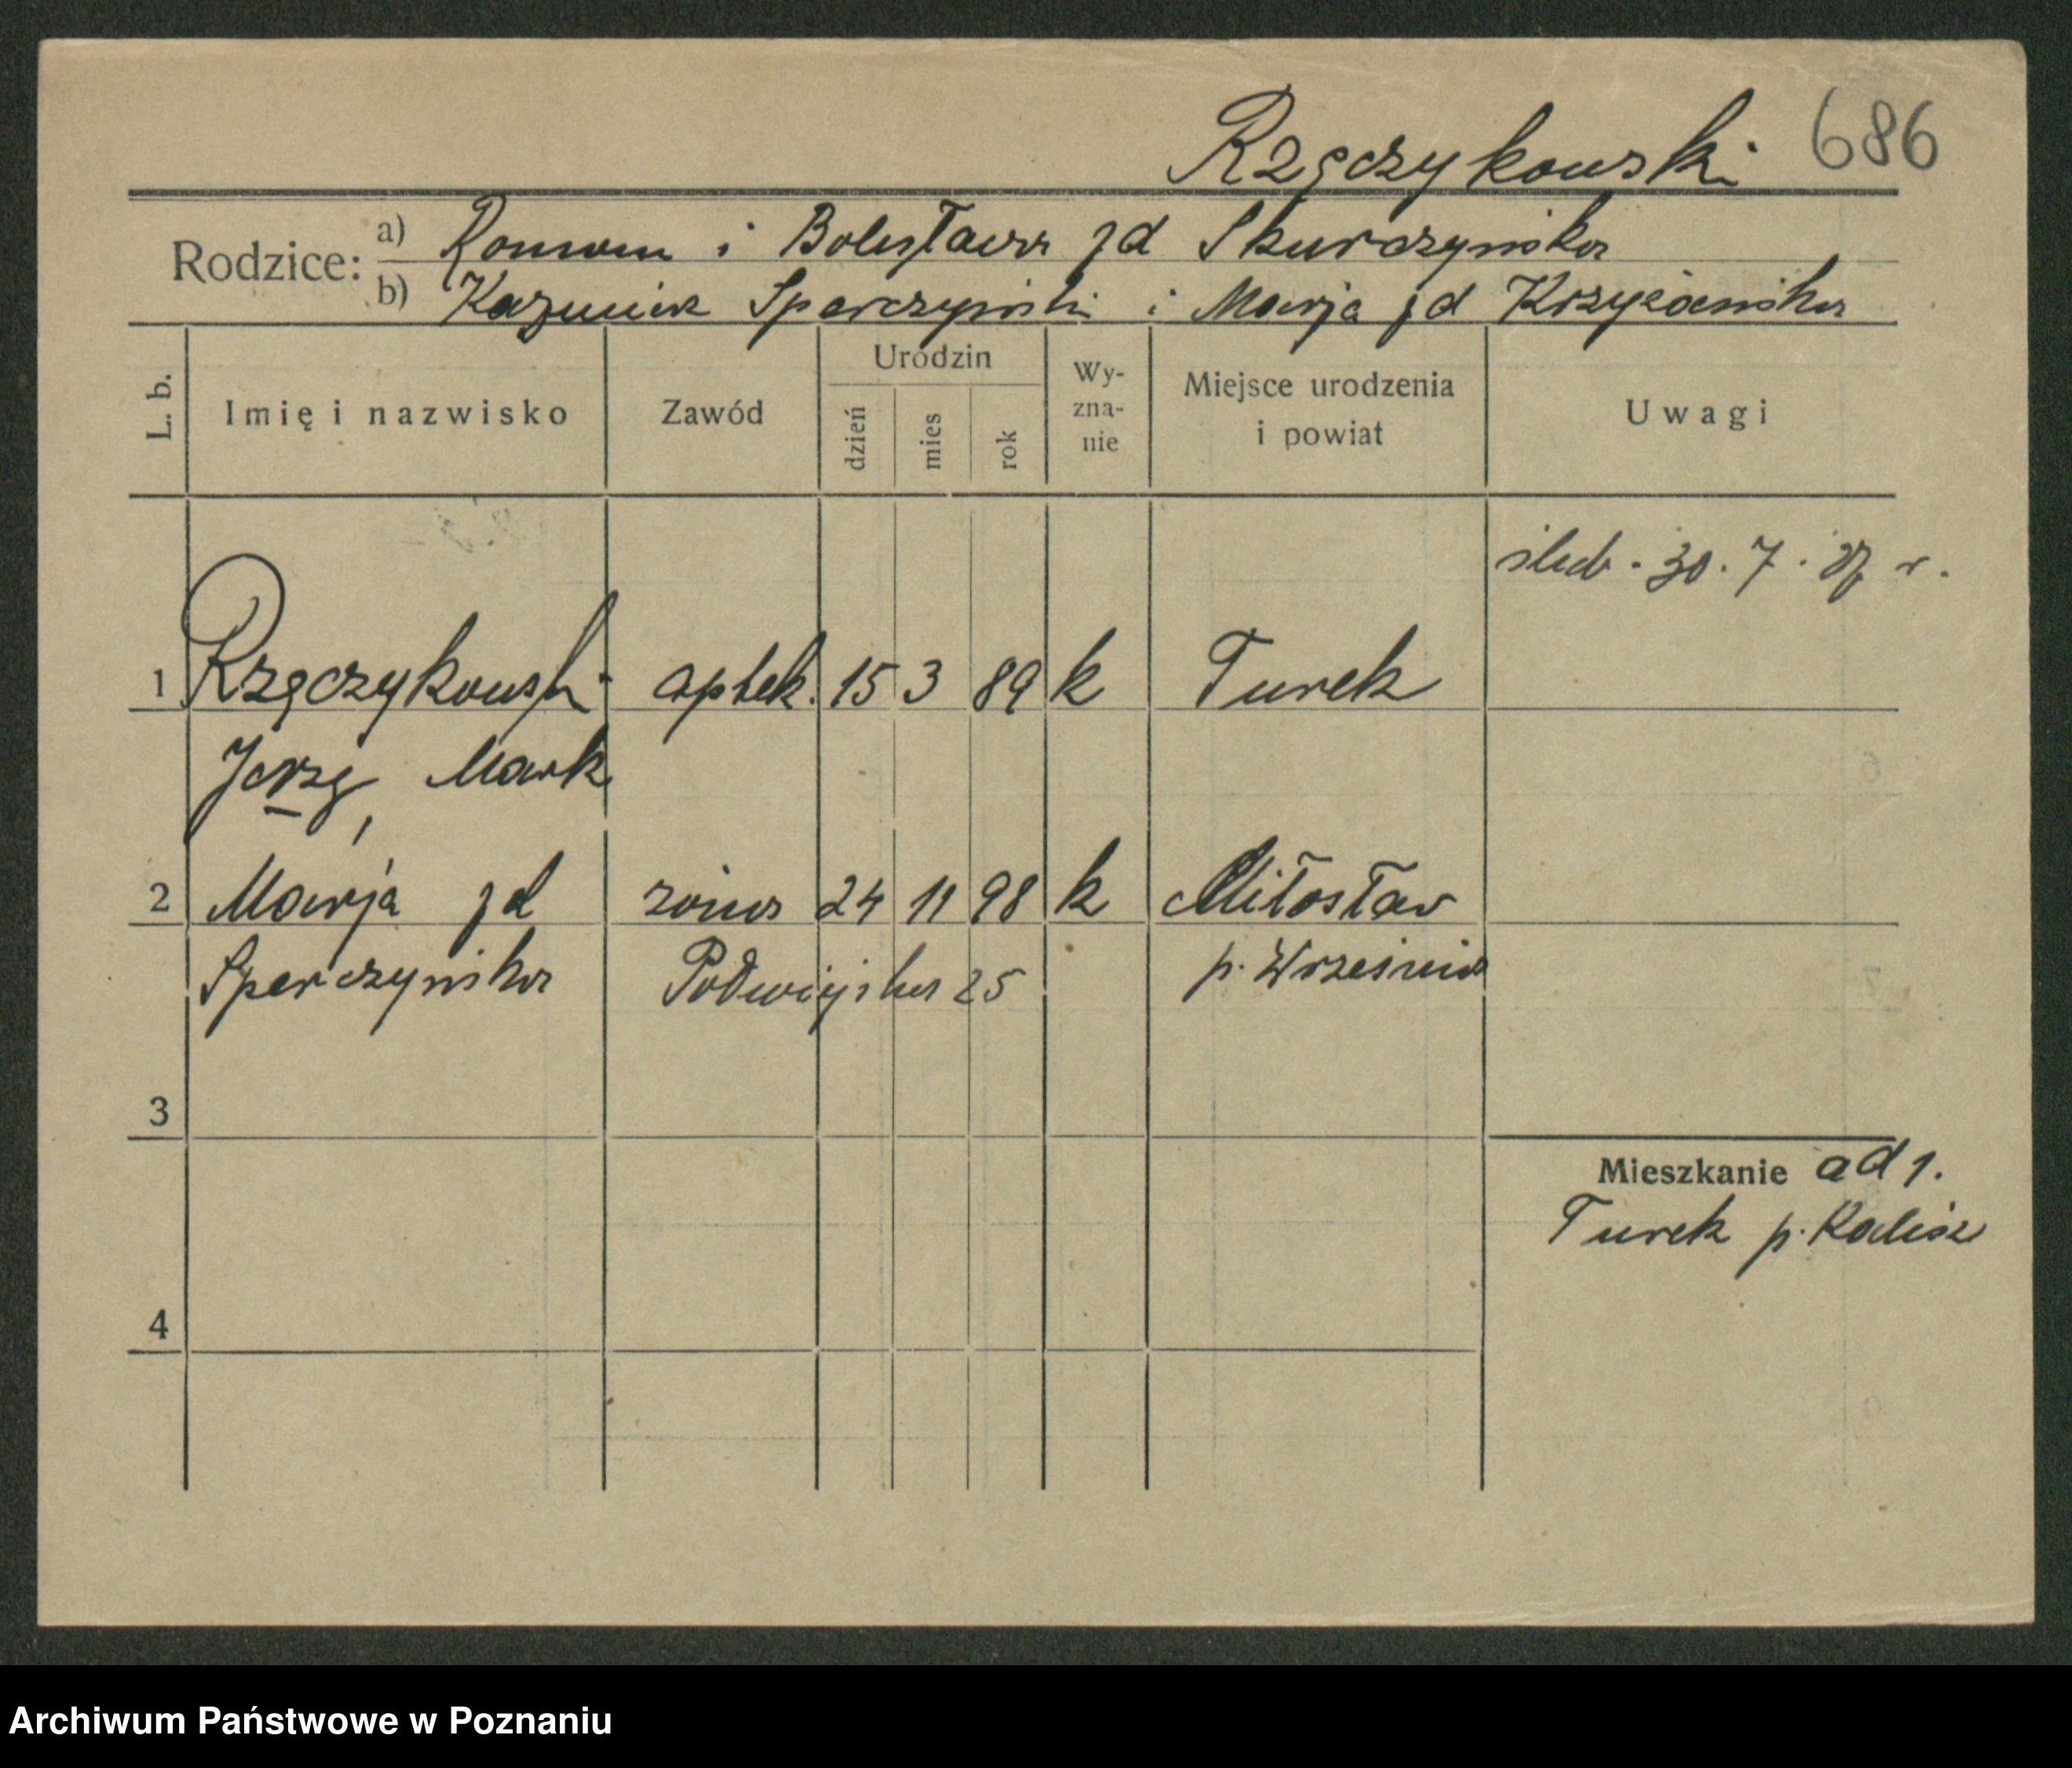 Rzęczykowski 686
Rodzice: a) Roman i Bolesława zd Skurczyńska
b) Kazimierz Sperczyński i Marja zd Krzyżańska
L. b. Imię i nazwisko Zawód Urodzin dzień mies rok Wy-zna-nie Miejsce urodzenia i powiat Uwagi
ślub. 30. 7. r.
1 Rzęczykowski aptek. 15 3 89 k Turek
Jerzy, Mark
2 Marja zd żona 24 11 98 k Miłosław
Sperczyńska 25 p. Września
3
Mieszkanie ad 1.
Turek p. Kalisz
4
Archiwum Państwowe w Poznaniu